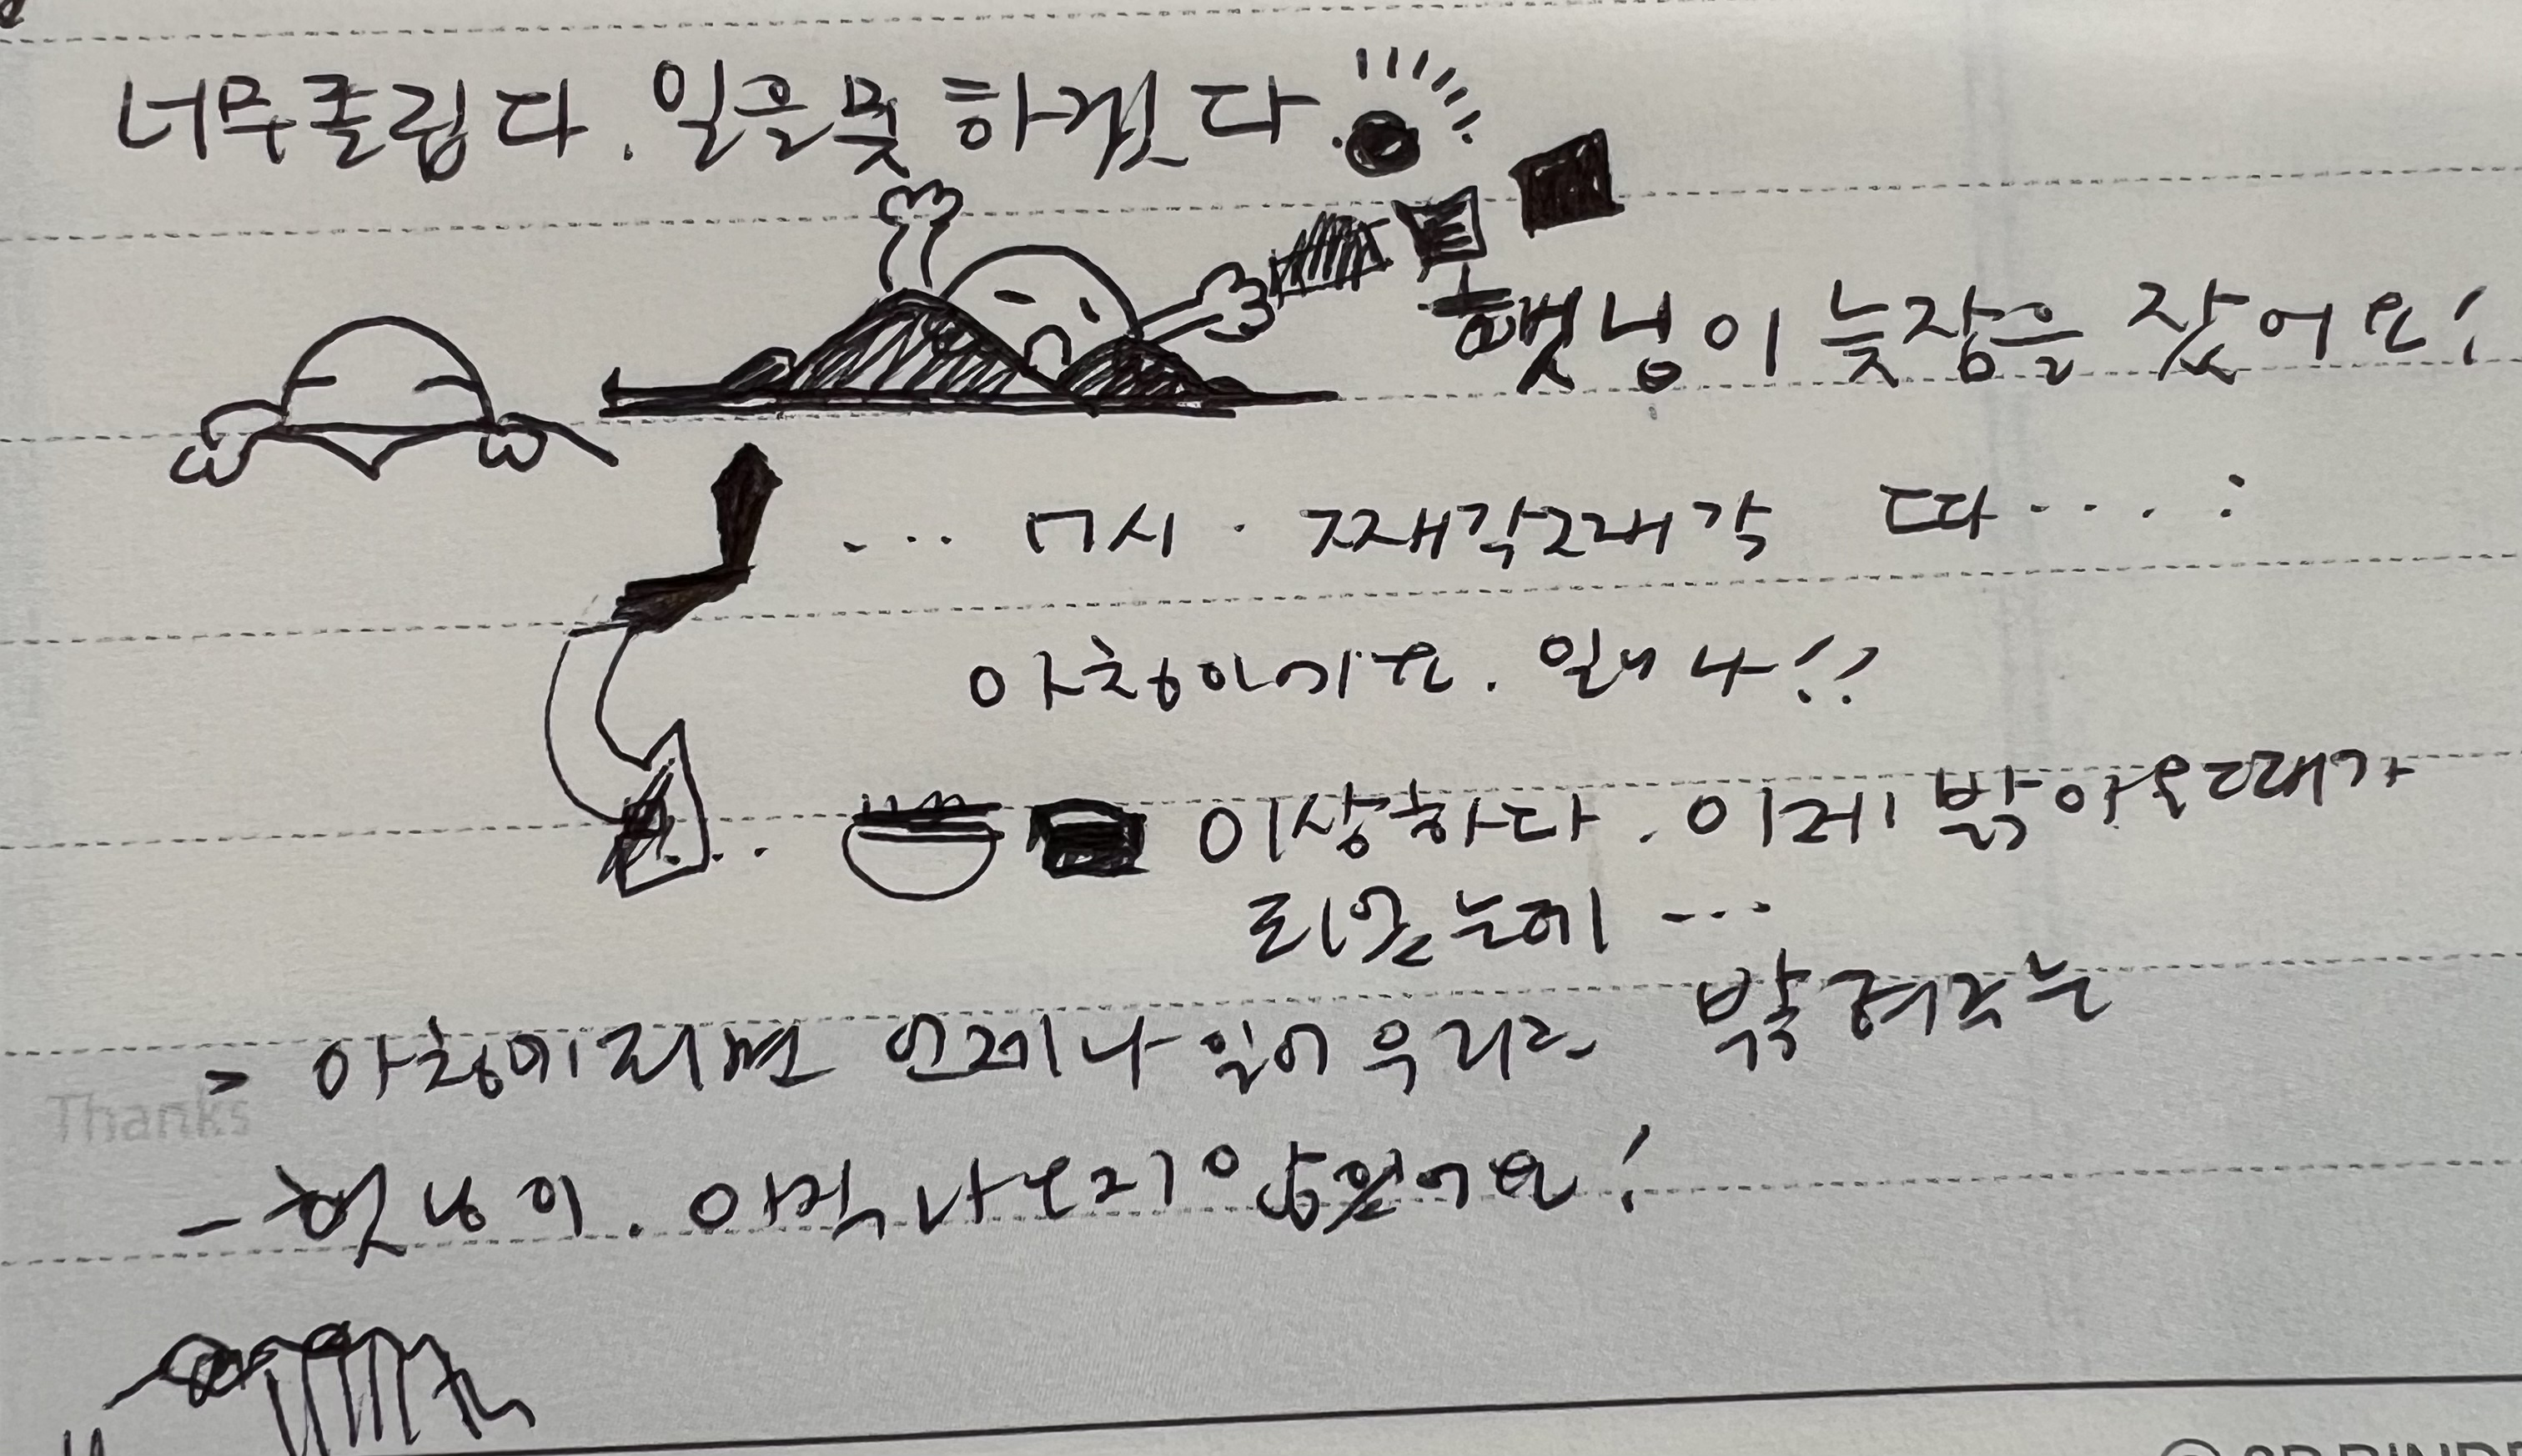 너무 졸립다. 일을 못 하겠다.
햇님이 늦잠을 잤어요!
... 7시. 째각째각 따....:
아침이에요. 일어나!?
... 이상하다. 이제 밝아올 때가
되었는데 ...
> 아침이 되면 언제나 일어 우리를 밝혀주는
Thanks
- 햇님이. 아직 나오지 않았어요!